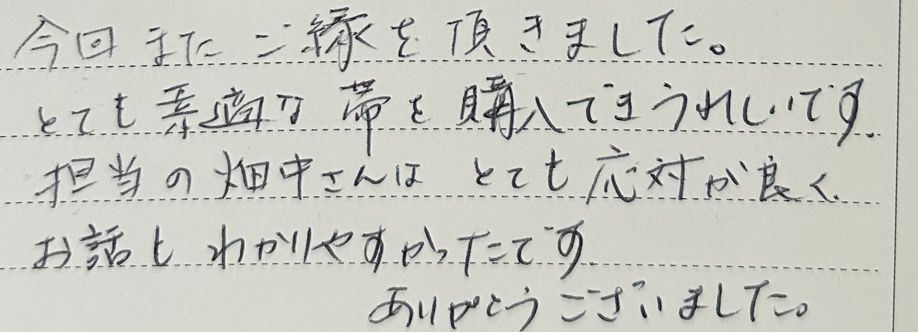 今回またご縁を頂きました。
とても素適な帯を購入できうれしいです。
担当の畑中さんはとても応対が良く、
お話もわかりやすかったです。
ありがとうございました。